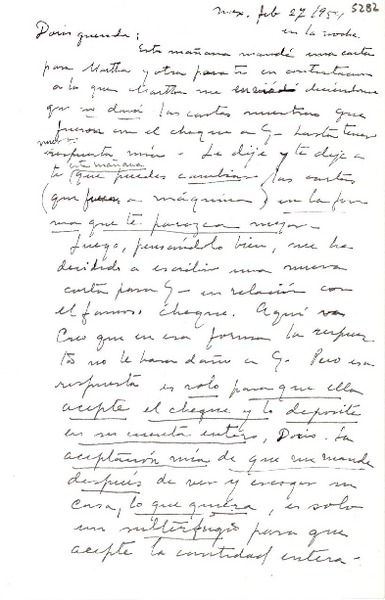 5282
Mex. feb 27/954
en la noche.
Doris querida:
Esta mañana mandé una carta
para Martha y otra para ti en contestacion
a la que Martha me envió diciendome
que no daná las cartas nuestras que
fueron con el cheque a G- hasta tener
nueva
respuesta mia. Le dije y te dije a
en mañana
te (que puedes cambiar las cartas
(que fueron a máquina) en la for
ma que te parezca mejor-
Luego, pensándolo bien, me he
decidido a escribir una nueva
carta para G- en relación con
el famoso cheque. Aquí va
Creo que en esa forma la respues
ta no le hará daño a G. Pero esa
respuesta es solo para que ella
acepte el cheque y lo deposite
en su cuenta entero, Doris. La
aceptación mia de que me mande
después de ver y escoger su
casa, lo que quiera, es solo
un subterfugio para que
acepte la cantidad entera-